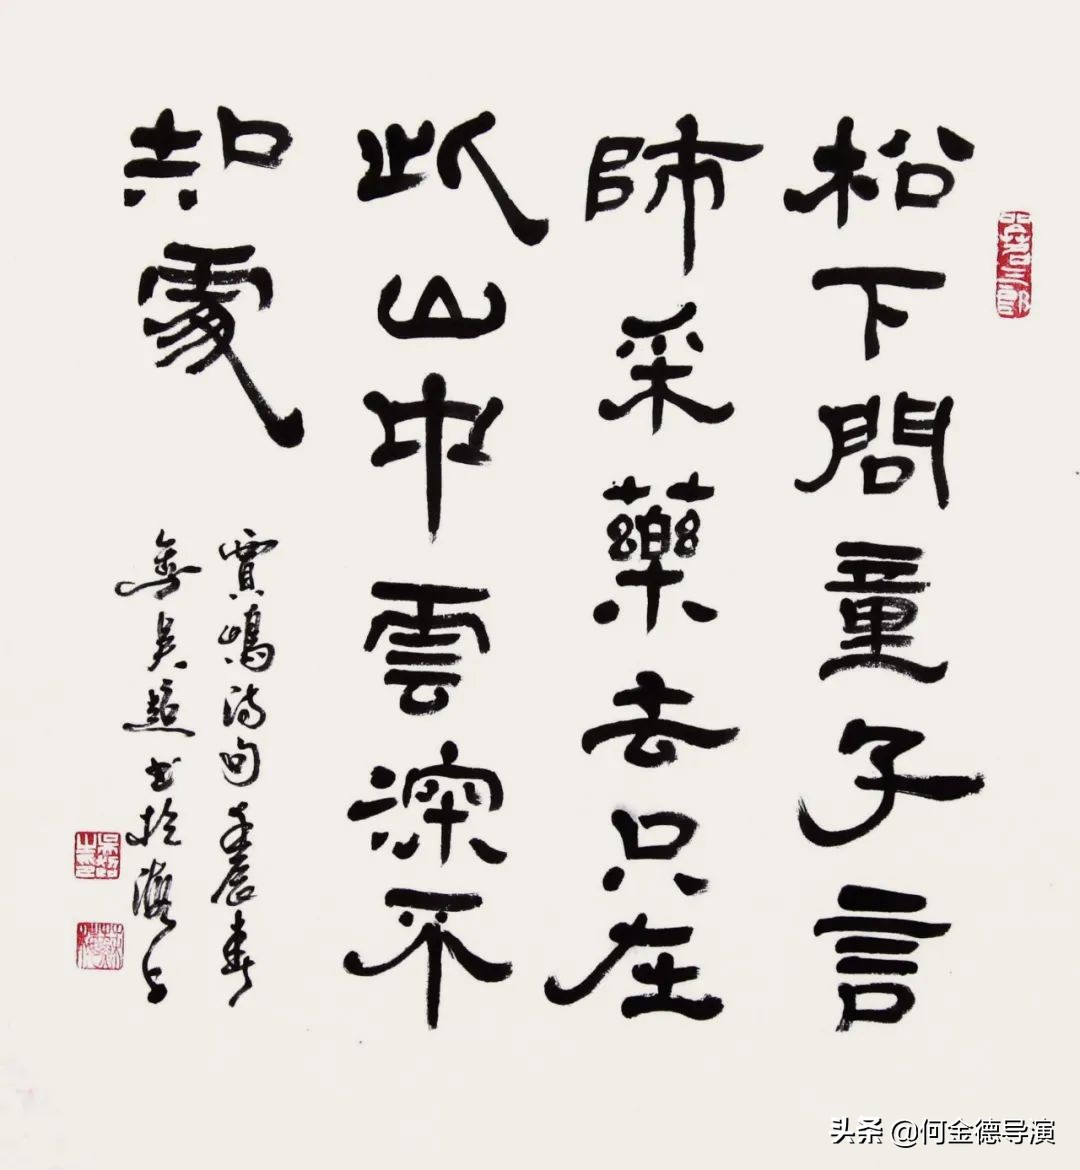 松下問童子言
師采藥去只在
此山中雲深不
知處
賈嶋詩句壬辰春
吳超书於滬上
头条 @何金德导演